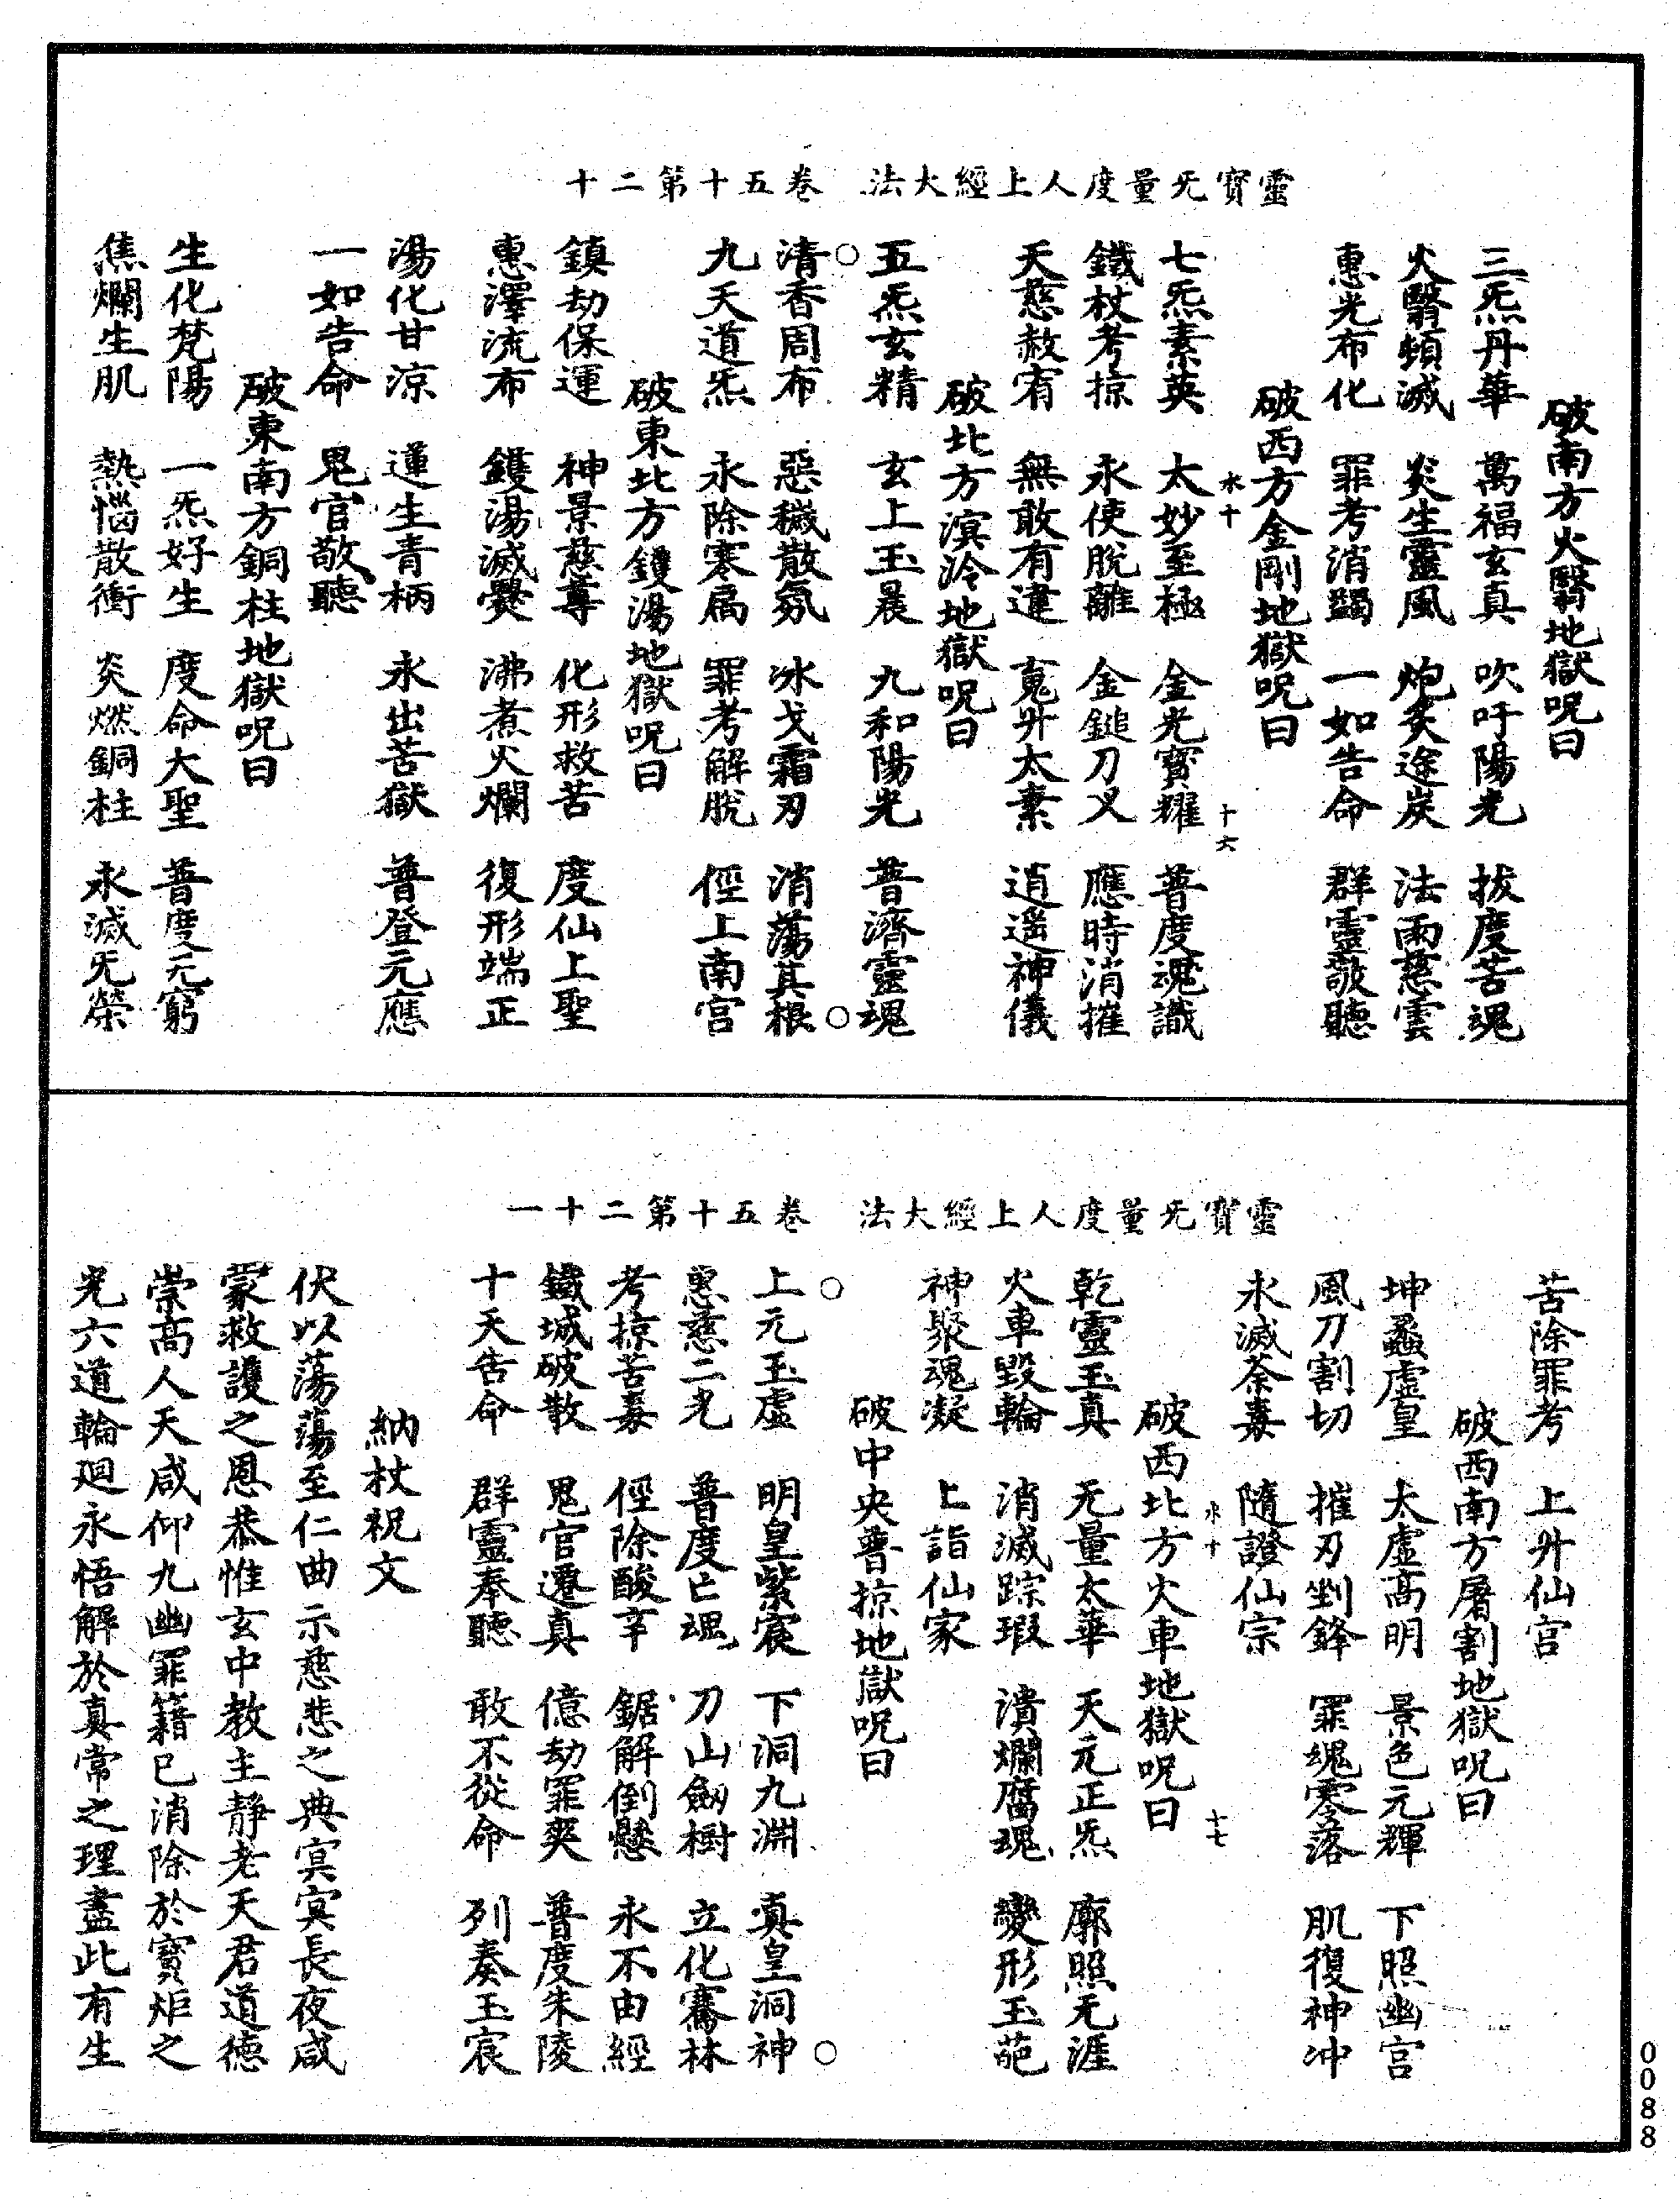 靈寶无量度人上經大法　卷五十第二十
破南方火翳地獄呪曰
三炁丹華　萬福玄真　吹吁陽光　拔度苦魂
火翳頓滅　炎生靈風　炮炙途炭　法雨慈雲
惠光布化　罪考消蠲　一如告命　群靈敬聽
破西方金剛地獄呪曰
水十　十六
七炁素英　太妙至極　金光寶耀　普度魂識
鐵杖考掠　永使脫離　金鎚刀叉　應時消摧
天慈赦宥　無敢有違　䰟升太素　逍遥神儀
破北方溟泠地獄呪曰
五炁玄精　玄上玉晨　九和陽光　普濟靈魂
清香周布　惡穢散氛　冰戈霜刃　消蕩其根
九天道炁　永除寒扃　罪考解脫　徑上南宫
破東北方鑊湯地獄呪曰
鎮劫保運　神景慈尊　化形救苦　度仙上聖
惠澤流布　鑊湯滅爨　沸煮火爛　復形端正
湯化甘涼　蓮生青柄　永出苦獄　普登元應
一如告命　鬼官敬聽
破東南方銅柱地獄呪曰
生化梵陽　一炁好生　度命大聖　普度无窮
焦爛生肌　熱惱散衝　炎燃銅柱　永滅旡榮
靈寶无量度人上經大法　卷五十第二十一
苦除罪考　上升仙官
破西南方屠割地獄呪曰
坤蠡虛皇　太虛高明　景色元輝　下照幽宫
風刀割切　摧刃剉鋒　罪魂零落　肌復神冲
永滅荼毒　隨證仙宗
水十　十七
破西北方火車地獄呪曰
乾靈玉真　无量太華　天元正炁　廓照无涯
火車毀輪　消滅踪瑕　潰爛腐魂　變形玉葩
神聚魂凝　上詣仙家
破中央普掠地獄呪曰
上元玉虛　明皇紫宸　下洞九淵　真皇洞神
惠慈二光　普度亡魂　刀山劒樹　立化騫林
考掠苦毒　徑除酸辛　鋸解倒懸　永不由經
鐵城破散　鬼官遷真　億劫罪爽　普度朱陵
十天告命　群靈奉聽　敢不從命　列奏玉宸
納杖祝文
伏以蕩蕩至仁曲示慈悲之典寘寘長夜咸
蒙救護之恩恭惟玄中教主靜老天君道德
崇高人天咸仰九幽罪籍已消除於寶炬之
光六道輪廻永悟解於真常之理盡此有生
0088